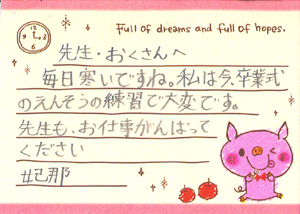 Full of dreams and full of hopes.
12
9 3
6
先生・おくさんへ
毎日寒いですね。私は今、卒業式
のえんそうの練習で大変です。
先生も、お仕事がんばって
ください